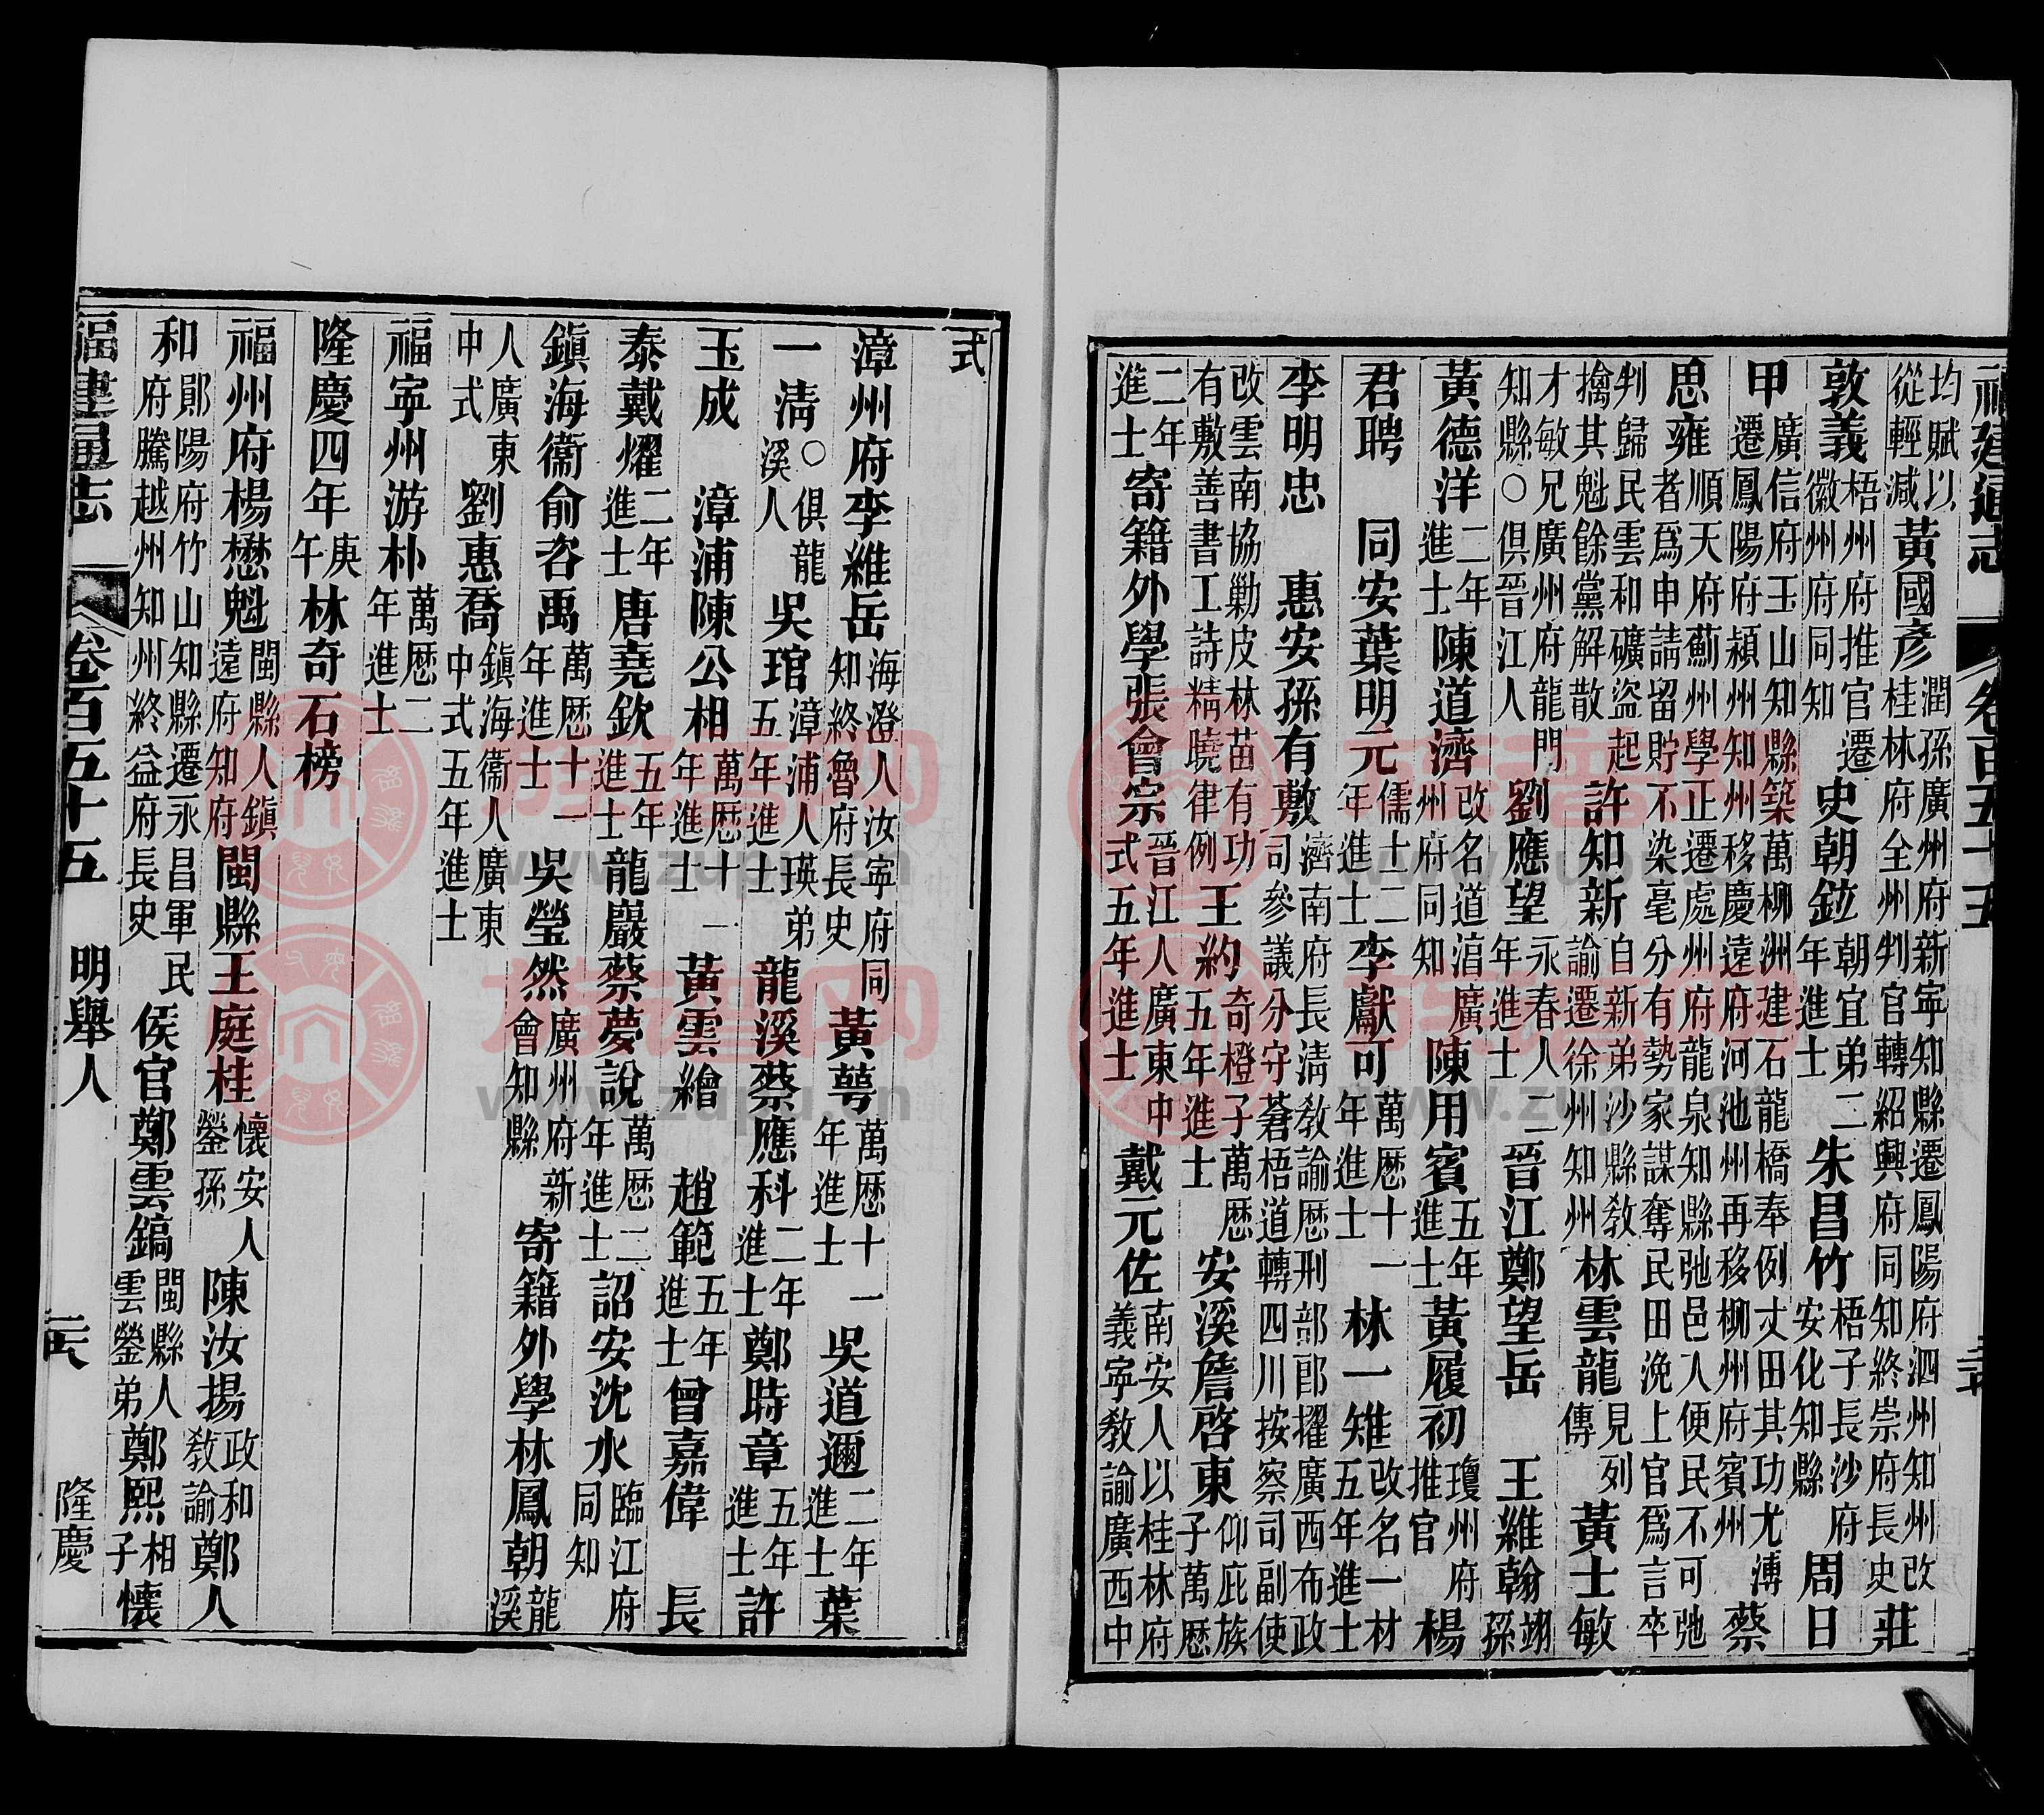 福建通志 卷百五十五
均賦以從輕減 黃國彥 潤孫廣州府新寧知縣遷鳳陽府泗州知州改桂林府全州判官轉紹興府同知終崇府長史 莊
敦義 梧州府推官遷徽州府同知 史朝鉉 朝宜弟二年進士 朱昌竹 梧子長沙府安化知縣 周日
甲 廣信府玉山知縣築萬柳洲建石龍橋奉例丈田其功尤溥遷鳳陽府潁州知州移慶遠府河池州再移柳州府賓州 蔡
思雍 順天府薊州學正遷處州府龍泉知縣弛邑人便民不可弛者為申請留貯不染毫分有勢家謀奪民田浼上官為言卒
判歸民雲和礦盜起擒其魁餘黨解散 許知新 自新弟沙縣教諭遷徐州知州 林雲龍 見列傳 黃士敏
才敏兄廣州府龍門知縣○俱晉江人 劉應望 永春人二年進士 晉江鄭望岳 王維翰 翊孫
黃德洋 二年進士 陳道濟 改名道涫廣州府同知 陳用賓 五年進士 黃履初 瓊州府推官 楊
君聘 同安葉明元 儒士二年進士 李獻可 萬曆十一年進士 林一雉 改名一材五年進士
李明忠 惠安孫有敷 濟南府長清教諭歷刑部郎擢廣西布政司參議分守蒼梧道轉四川按察司副使
改雲南協勦皮林苗有功有敷善書工詩精曉律例 王約 奇橙子萬曆五年進士 安溪詹啓東 仰庇族子萬曆
二年進士 寄籍外學張會宗 晉江人廣東中式五年進士 戴元佐 南安人以桂林府義寧教諭廣西中
式
漳州府李維岳 海澄人汝寧府同知終魯府長史 黃蕚 萬曆十一年進士 吳道邇 二年進士 葉
一清 ○俱龍溪人 吳琯 漳浦人瑛弟五年進士 龍溪蔡應科 二年進士 鄭時章 五年進士 許
玉成 漳浦陳公相 萬曆十一年進士 黃雲繪 趙範 五年進士 曾嘉偉 長
泰戴燿 二年進士 唐堯欽 五年進士 龍巖蔡夢說 萬曆二年進士 詔安沈水 臨江府同知
鎮海衞俞咨禹 萬曆十一年進士 吳瑩然 廣州府新會知縣 寄籍外學林鳳朝 龍溪
人廣東中式 劉惠喬 鎮海衞人廣東中式五年進士
福寧州游朴 萬曆二年進士
隆慶四年 庚午 林奇石榜
福州府楊懋魁 閩縣人鎮遠府知府 閩縣王庭桂 懷安人鎣孫 陳汝揚 政和教諭 鄭人
和 鄖陽府竹山知縣遷永昌軍民府騰越州知州終益府長史 侯官鄭雲鎬 閩縣人雲鎣弟 鄭熙 相子 懷
福建通志 卷百五十五 明舉人 隆慶